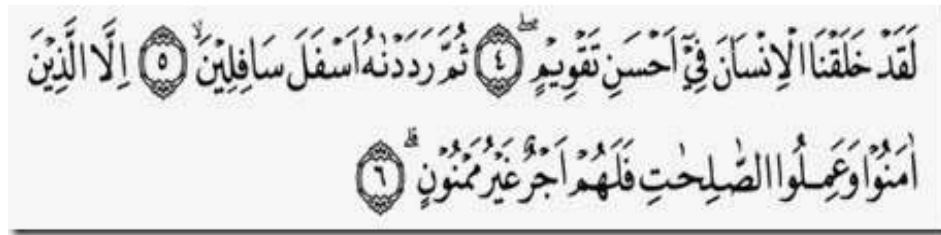 لَقَدْ خَلَقْنَا الْاِنْسَانَ فِيْٓ اَحْسَنِ تَقْوِيْمٍۖ ٤ ثُمَّ رَدَدْنٰهُ اَسْفَلَ سَافِلِيْنَۙ ٥ اِلَّا الَّذِيْنَ
اٰمَنُوْا وَعَمِلُوا الصّٰلِحٰتِ فَلَهُمْ اَجْرٌ غَيْرُ مَمْنُوْنٍۗ ٦